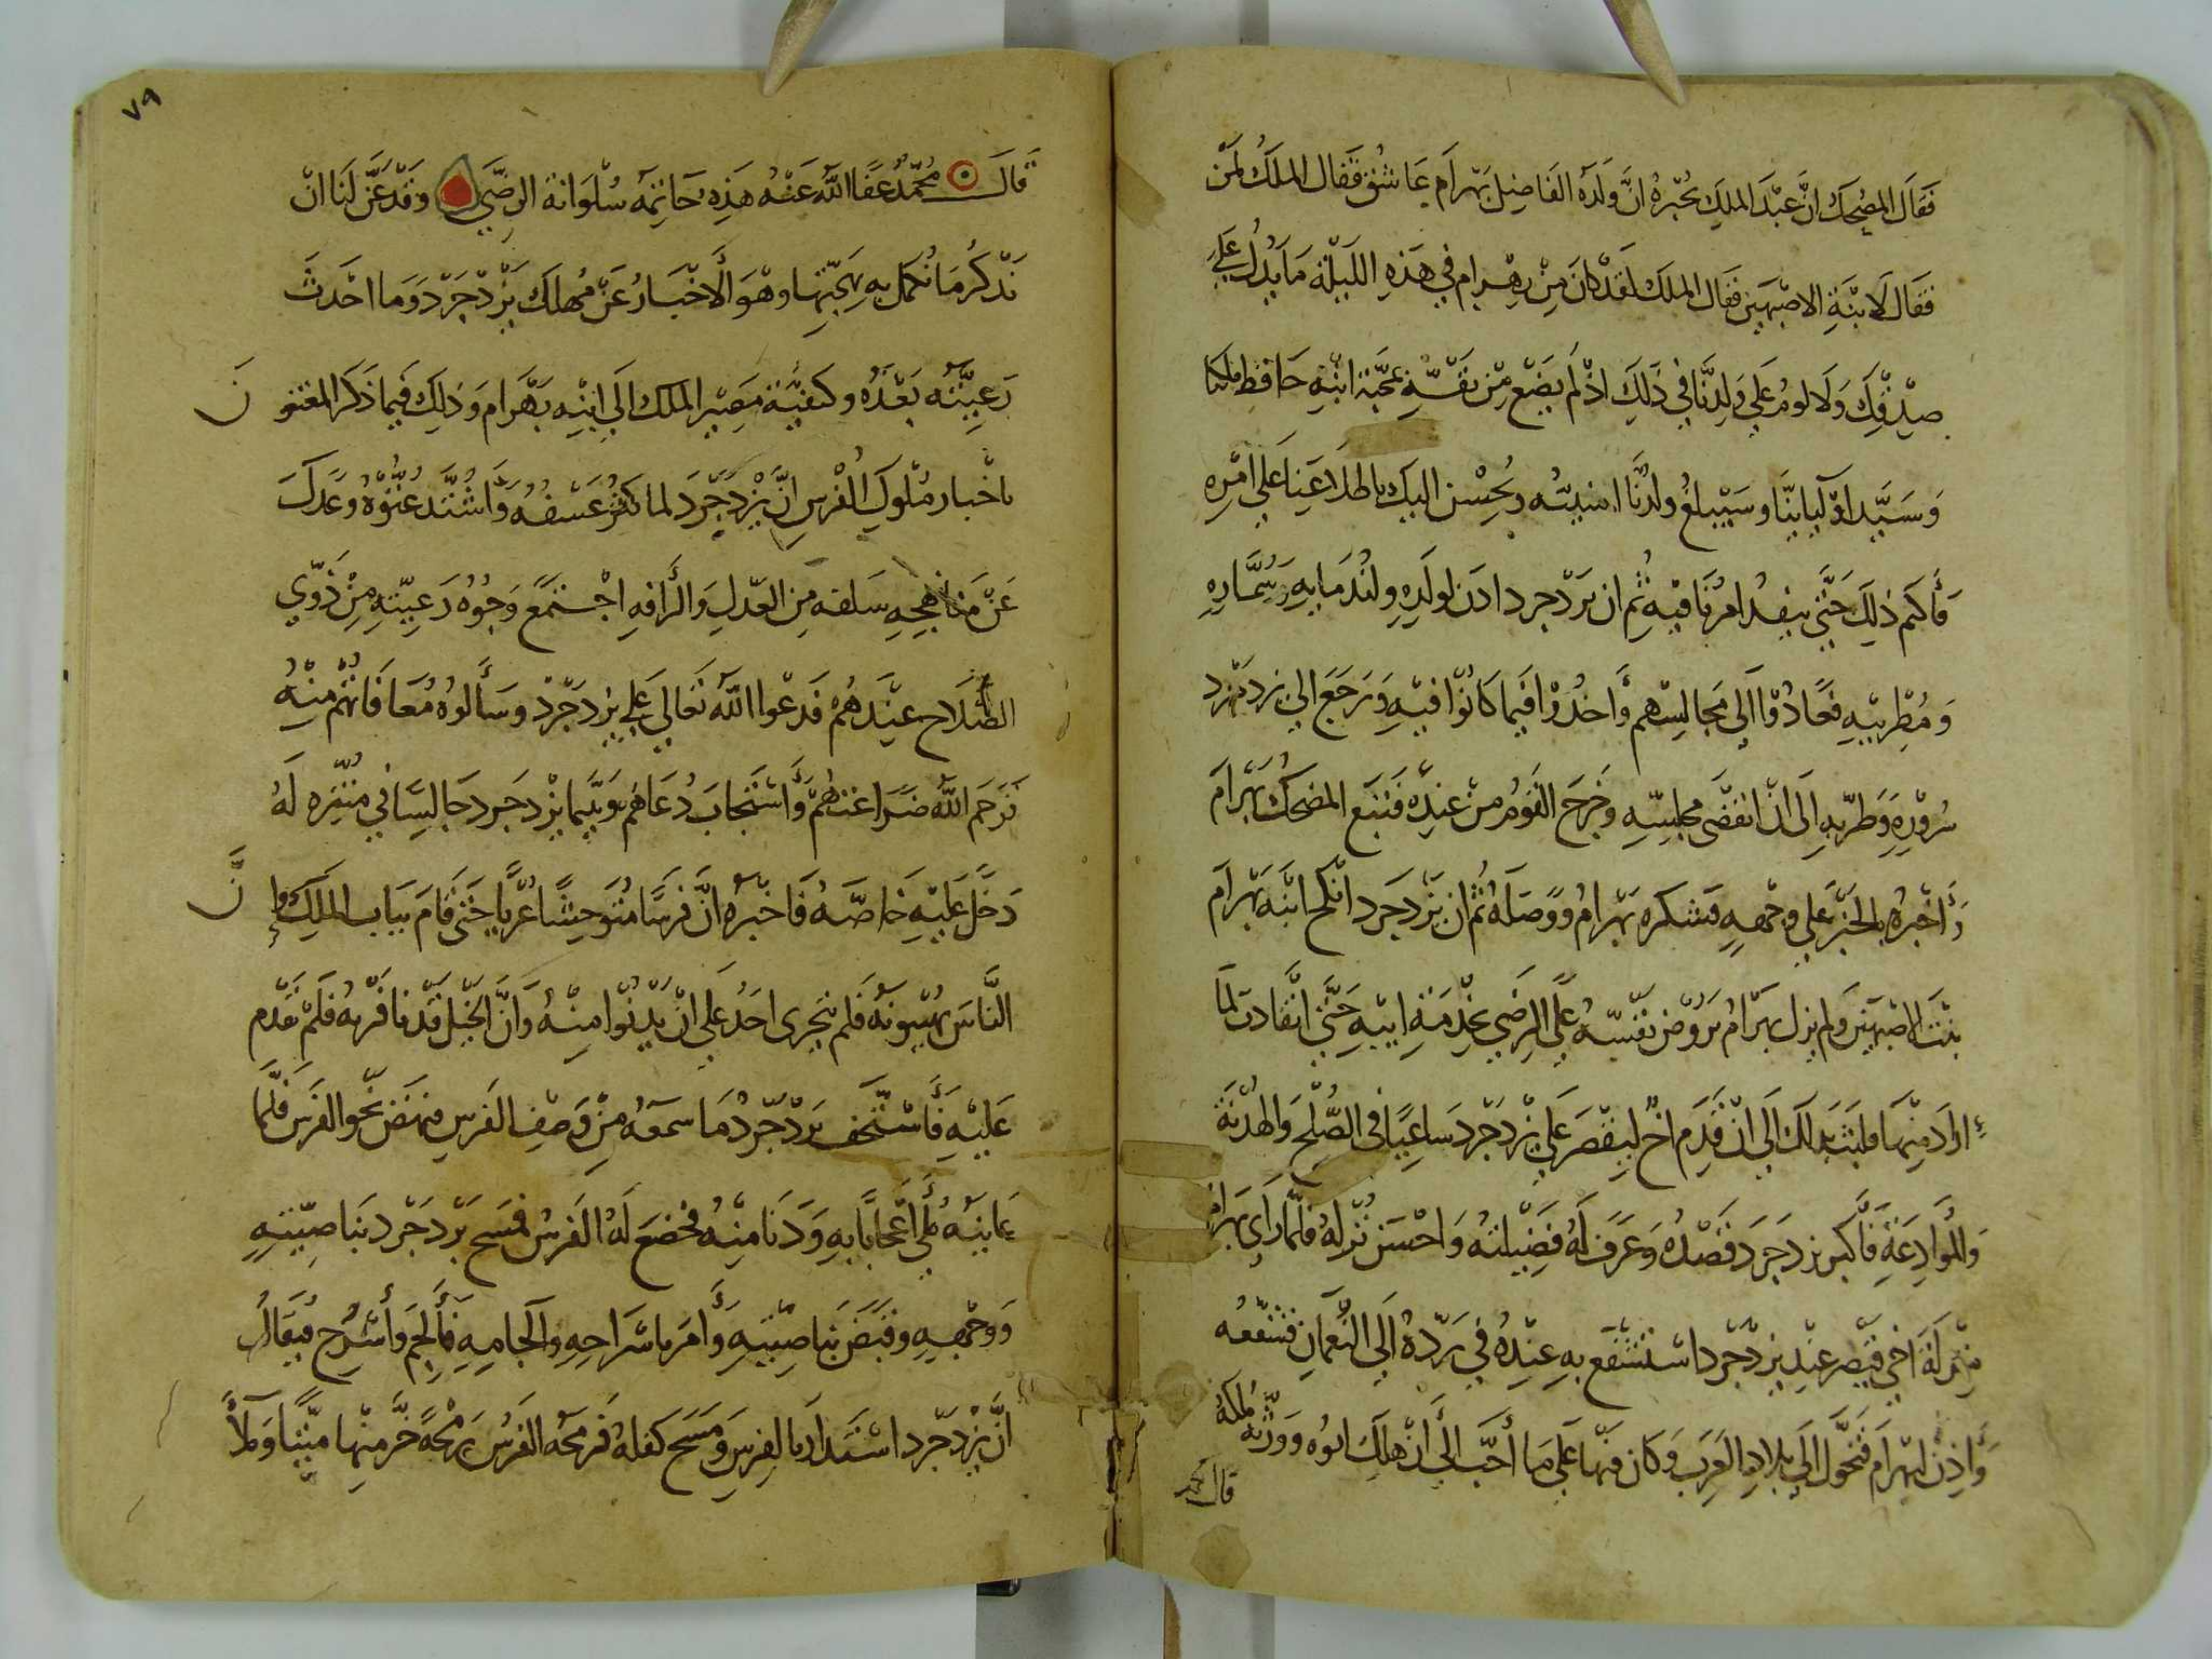 فَقَالَ المضْحِكُ انَّ عَبْدَ الملِكِ يُخْبِرُهُ انَّ وَلَدَهُ الفَاضِلَ بَهْرَامَ عَاشُقٌ فَقال الملَكُ لمَنْ
فَقَالَ لَابْنَةِ الاصْبَهبَذ فَقال الملَك لقَدْ كانَ مِنْ بهْرام في هَذِهِ اللَيْلَةِ مَا يَدُلُ عَلي
صِدْقِكَ وَلَا لومُ عَلي وَلَدِنَا في ذَلِكَ اذْ لَم يَضَعْ مِنْ نفْسِهِ بمَحَبَّةِ ابْنَةِ حَافظ ملكنا
وَسَيَّد اوْليائِنَا وسَيَبْلغُ ولدُنَا امنيتُه ويُحْسِن اليكَ باطلاعَنا عَلي امْرِه
فَأكتم ذلِكَ حَتَّى ينفذ امرُنا فيْهِ ثُم ان يزدجرد اذن لولَدِهِ ولنُدَمَايهِ وَسُمَّارِهِ
وَمُطْرِبيْهِ فعَادُوْا الَى مَجَالِسِهم وَاخذُوْا فيما كَانُوْا فيْهِ وَرَجَعَ الي يزدجرد
سُرُوْرِهِ وَطَرَبِهِ الَى انْ انقَضَى مجلِسِهِ وخَرجَ القَومُ منْ عندِه فتَبَعَ المضحكُ بَهْرَامَ
وَأخْبَرَهُ بالخَبَرِ عَلي وجْهِهِ فشكَره بَهْرامُ وَوَصَلَهُ ثُم ان يَزْدجَرد انْكحَ ابْنَهُ بَهْرامَ
بنْتَ الاصْبَهبَذ وَلم يزل بهرَامُ يَرُوْضُ نفْسَهُ عَلَى الرِضَى بخِدْمَةِ ابيْهِ حَتَّى انْقادتْ لمَا
ارادَ مِنْهَا فلبثَ بذلكَ الَى انْ قَدِمَ اخٌ لقيْصَرَ عَلَي يَزْدجَرد سَاعِيًا في الصُّلْحِ وَالهُدْنَةِ
وَالمُوَادَعَةِ فأكبر يزدجَرد قَصْدُهُ وَعَرَفَ لَهُ فَضِيْلَتهُ وَاحْسَنَ نُزُلَهُ فلَمّا رَأى بَهرام
مَنْزلَةَ اخي قَيْصر عنْدَ يزدجْرد استَشْفَعَ بهِ عنْدَهُ في رَدّهُ الَى النُّعْمانِ فشفّعه
وَأذِنَ لبهْرَام فتَحَوَّلَ الَى بلادِ العَرَبَ وَكانَ فيْها عَلي مَا أحَبَّ الي أنْ هلكَ ابوُه وَوَرّثَهُ مُلْكهُ
قال محمد
٧٩
قالَ مُحمّدٌ عَفَا اللهُ عَنْهُ هَذِهِ خَاتِمَةُ سُلْوَانةِ الرِضَى وَقَدْ عَنَّ لَنَا انْ
نَذْكُرُ مَا نُكمل به بهَجَتها وهْوَ الَاخْبَارُ عَنْ مَهلكِ يَزْدجَرْد وَمَا احْدثَ
رَعِيَّتُه بَعْدَهُ وكيْفيَّة مَصيْر الملك الَى ابْنِهِ بَهْرَام وَذلِكَ فيما ذَكَر المعْتنون
باخْبار مُلْوكِ الفُرْسِ انَّ يَزْدجَرْدَ لما كثُر عَسْفُهُ وَاشْتَدَّ عُتُوّهُ وعَدَلَ
عَنْ منَاهِجِ سَلفه مَن العَدلِ وَالرَافةِ اجْتَمَع وُجُوْهُ رَعِيَّتهِ مِنْ ذَوِي
الصَّلَاح عنْدَهُمْ فَدعَوا اللهَ تعَالي عَلي يزدجَرْد وسَأَلُوهُ مُعَافَاتهُم منْهُ
فرَحِمَ اللهُ ضرَاعَتهُمْ وَأسْتَجابَ دُعَاهُم وبَيْنما يزْدجَرد جَالِسًا في مُتَنَزه لَهُ
دَخَلَ عَليْهِ خاصَّهُ فَاخْبَرهُ انَّ فَرسًا مُتَوَحِشًا عُريًا حَتى قَامَ بِبَاب الملِكِ وانَّ
النَّاسَ تهَيبُونَهُ فَلم يَجرى احَدُ عَلي انْ يَدْنُوْا منِهُ وَانَّ الخَيْلَ قدْ نافَرتْهُ فلَمْ تَقدُم
عَليْهِ فَأسْتَخف يَزدْجرْدُ مَا سمعَهُ منْ وَصْفِ الفَرسِ فنهَضَ نَحْو الفَرس فلَمَّا
عَاينَهُ مُلئَ اعْجَابًا بهِ وَدَنَا منْهُ فخضعَ لَهُ الفَرسُ فمسَحَ يَزْدجَرْد بنَاصيَتهِ
وَوجْههِ وقبَضَ بنَاصِيَتهِ وَأمَر باسْرَاجهِ والجَامهِ فَأُلجِمَ وَأُسْرِج فيُقَالُ
انَّ يزْدجَرد اسْتَدَار بالفرسِ وَمَسَح كفَلهُ فَرمَحَهُ الفرَسُ رَمْحَةً خَرَّ منْهَا ميِّتًا وَملأ